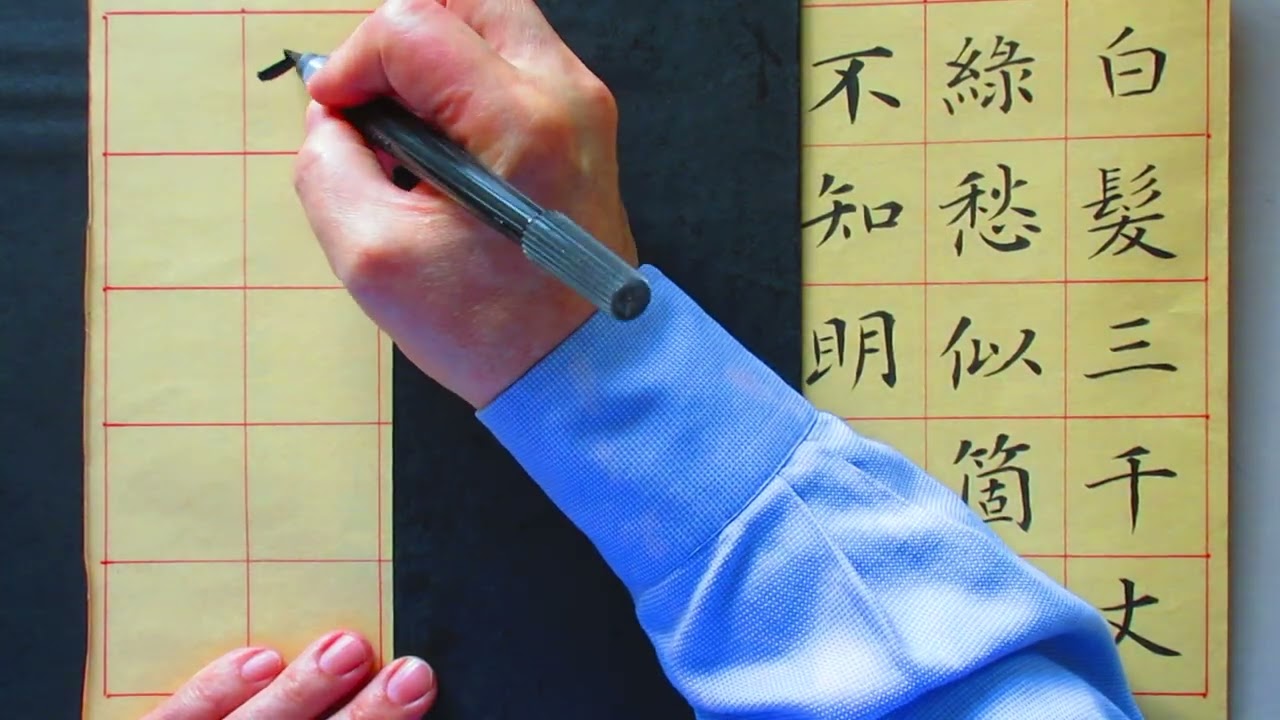 白髮三千丈
綠愁似箇
不知明